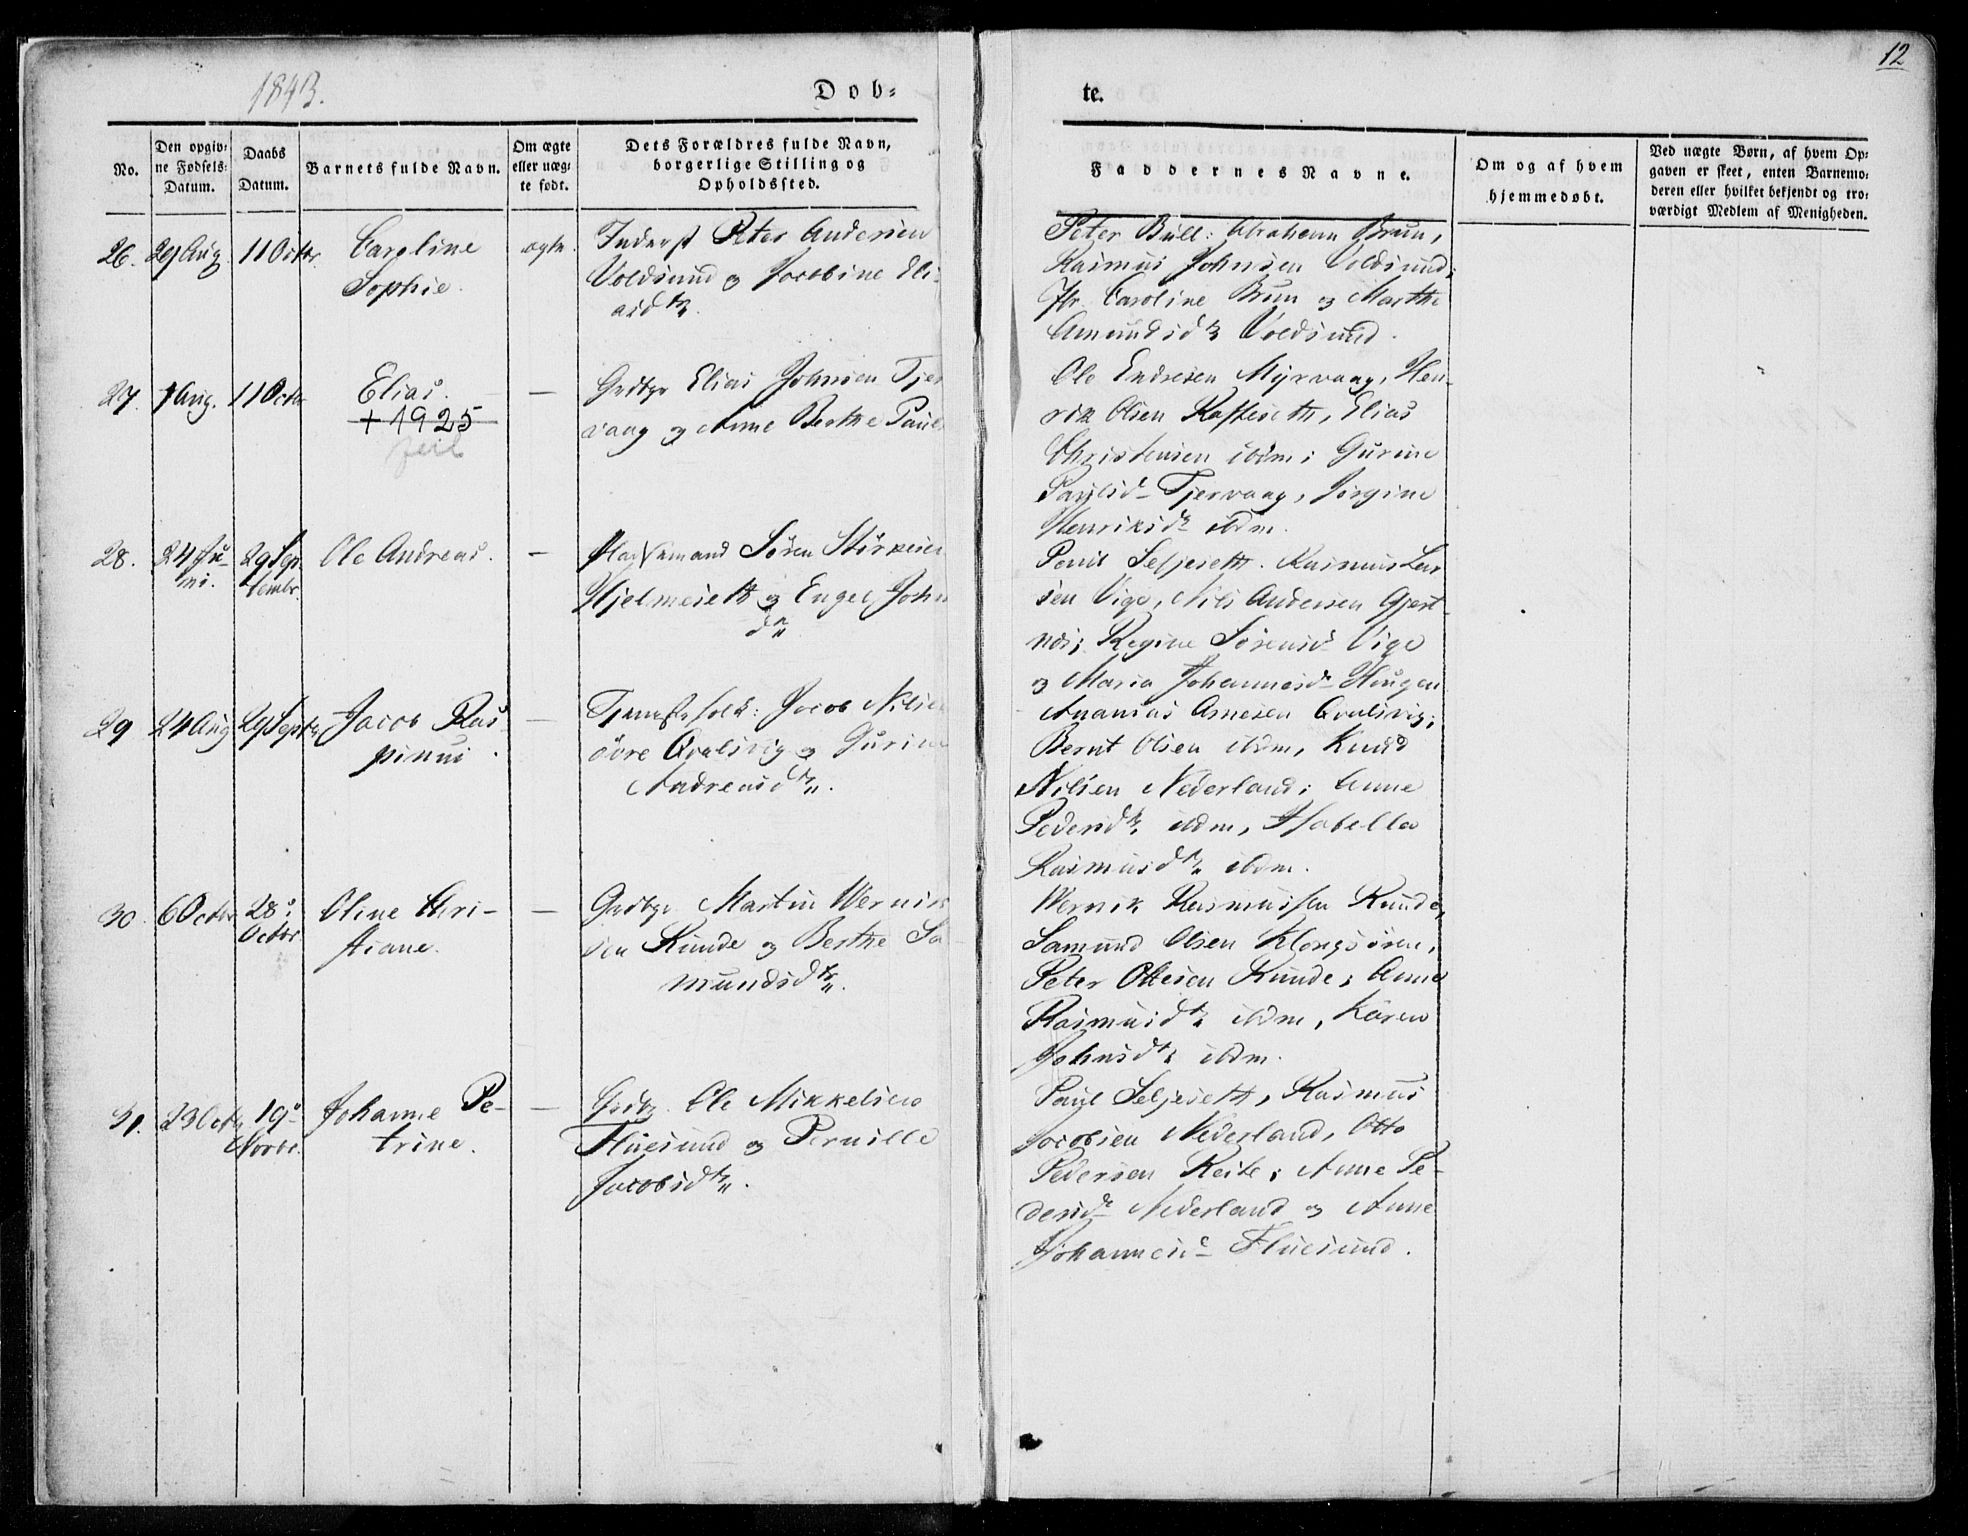 1843.
Dob-
te.
12
No.
Den opgiv-
ne Fødsels-
Datum.
Daabs
Datum.
Barnets fulde Navn.
Om ægte
eller uæg-
te født.
Dets Forældres fulde Navn,
borgerlige Stilling og
Opholdssted.
Faddernes Navne.
Om og af hvem
hjemmedøbt.
Ved uægte Børn, af hvem Op-
gaven er skeet, enten Barnemo-
deren eller hvilket bekjendt og tro-
værdigt Medlem af Menigheden.
26.
29 Aug.
11 Octbr.
Caroline
Sophie.
ægte.
Inderst Peter Andersen
Voldsund og Jacobine Eli-
asdtr.
Peter Büll: Abraham Brun,
Rasmus Johnsen Voldsund;
Jfr. Caroline Brun og Marthe
Amundsdtr Voldsund.
27.
7 Aug.
11 Octbr
Elias.
+ 1925
feil
—
Grdbgr Elias Johnsen Tjer
vaag og Anne Berthe Pauls
Ole Endresen Myrvaag, Hen-
rik Olsen Koppeseth, Elias
Christensen ibdm; Gurine
Paulsd Tjervaag, Jørgine
Henriksd ibdm.
28.
24 Ju-
ni.
29 Sep-
tembr.
Ole Andreas.
—
Pladsemand Søren Størkesen
Hjelmeseth og Engel John
dtr
Povel Seljeseth. Rasmus Lar
sen Vige, Nils Andersen Gjert-
næs; Regine Sørensd Vige
og Maria Johannesd Haugen
29
24 Aug
29 Septbr
Jacob Ras-
pinus.
—
Tjenestefolk: Jacob Nilsen
øvre Qvalsvig og Gurine
Andreasdtr.
Ananias Arnesen Qvalsvig;
Bernt Olsen ibdm, Knud
Nilsen Nederland; Anne
Pedersdtr ibdm, Isabella
Rasmusdtr ibdm.
30.
6 Octbr
28
Octbr
Oline Chri-
stiane.
—
Grdbgr Martin Wernik
sen Runde og Berthe Sa-
mundsdtr.
Wernik Rasmussen Runde,
Samund Olsen Klongsøren,
Peter Ottesen Runde; Anne
Rasmusdtr ibdm, Karen
Johnsdtr ibdm.
31.
23 Octbr
19
Novbr.
Johanne Pe-
trine.
—
Grdbgr. Ole Mikkelsen
Fluesund og Pernille
Jacobsdtr.
Paul Seljeseth, Rasmus
Jacobsen Nederland, Otto
Pedersen Keite; Anne Pe-
dersd Nederland og Anne
Johannesd Fluesund.